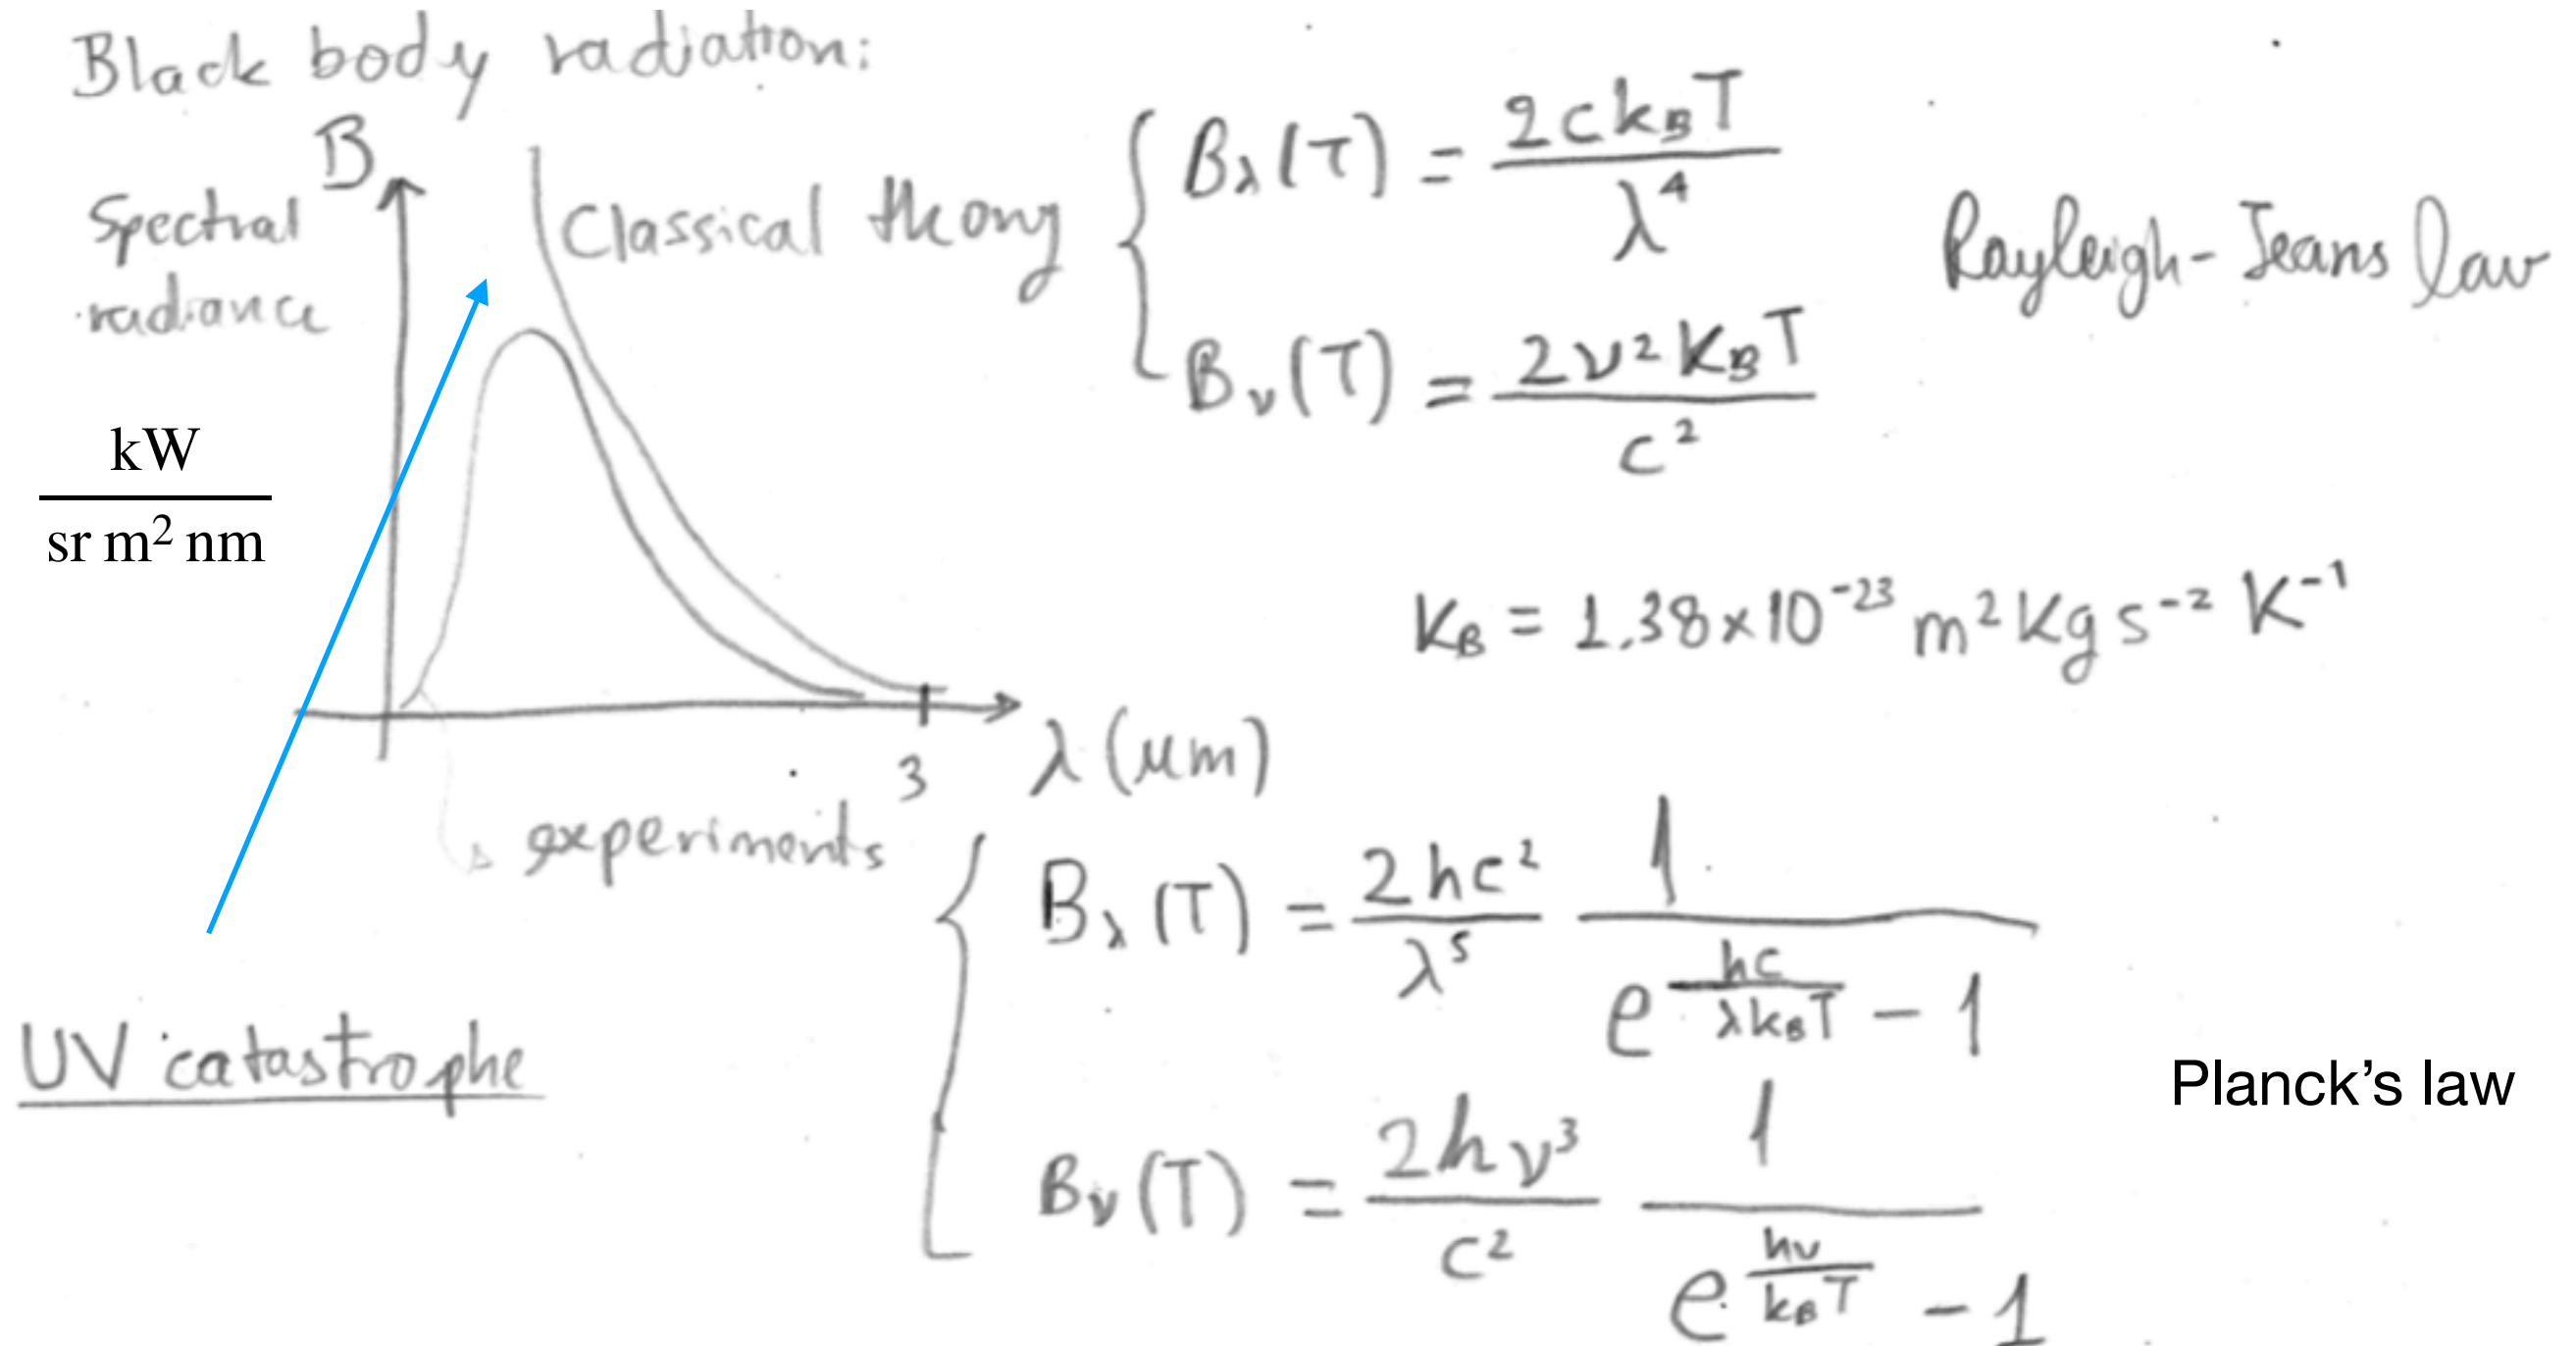 Black body radiation:
B
Spectral
radiance
kW
sr m² nm
Classical theory
B_λ(T) = 2ck_BT / λ⁴
B_ν(T) = 2ν²K_BT / c²
Rayleigh-Jeans law
K_B = 1.38×10⁻²³ m² Kg s⁻² K⁻¹
3
λ (μm)
experiments
UV catastrophe
B_λ(T) = 2hc² / λ⁵ 1 / e^(hc / λk_BT) − 1
B_ν(T) = 2hν³ / c² 1 / e^(hν / k_BT) − 1
Planck's law